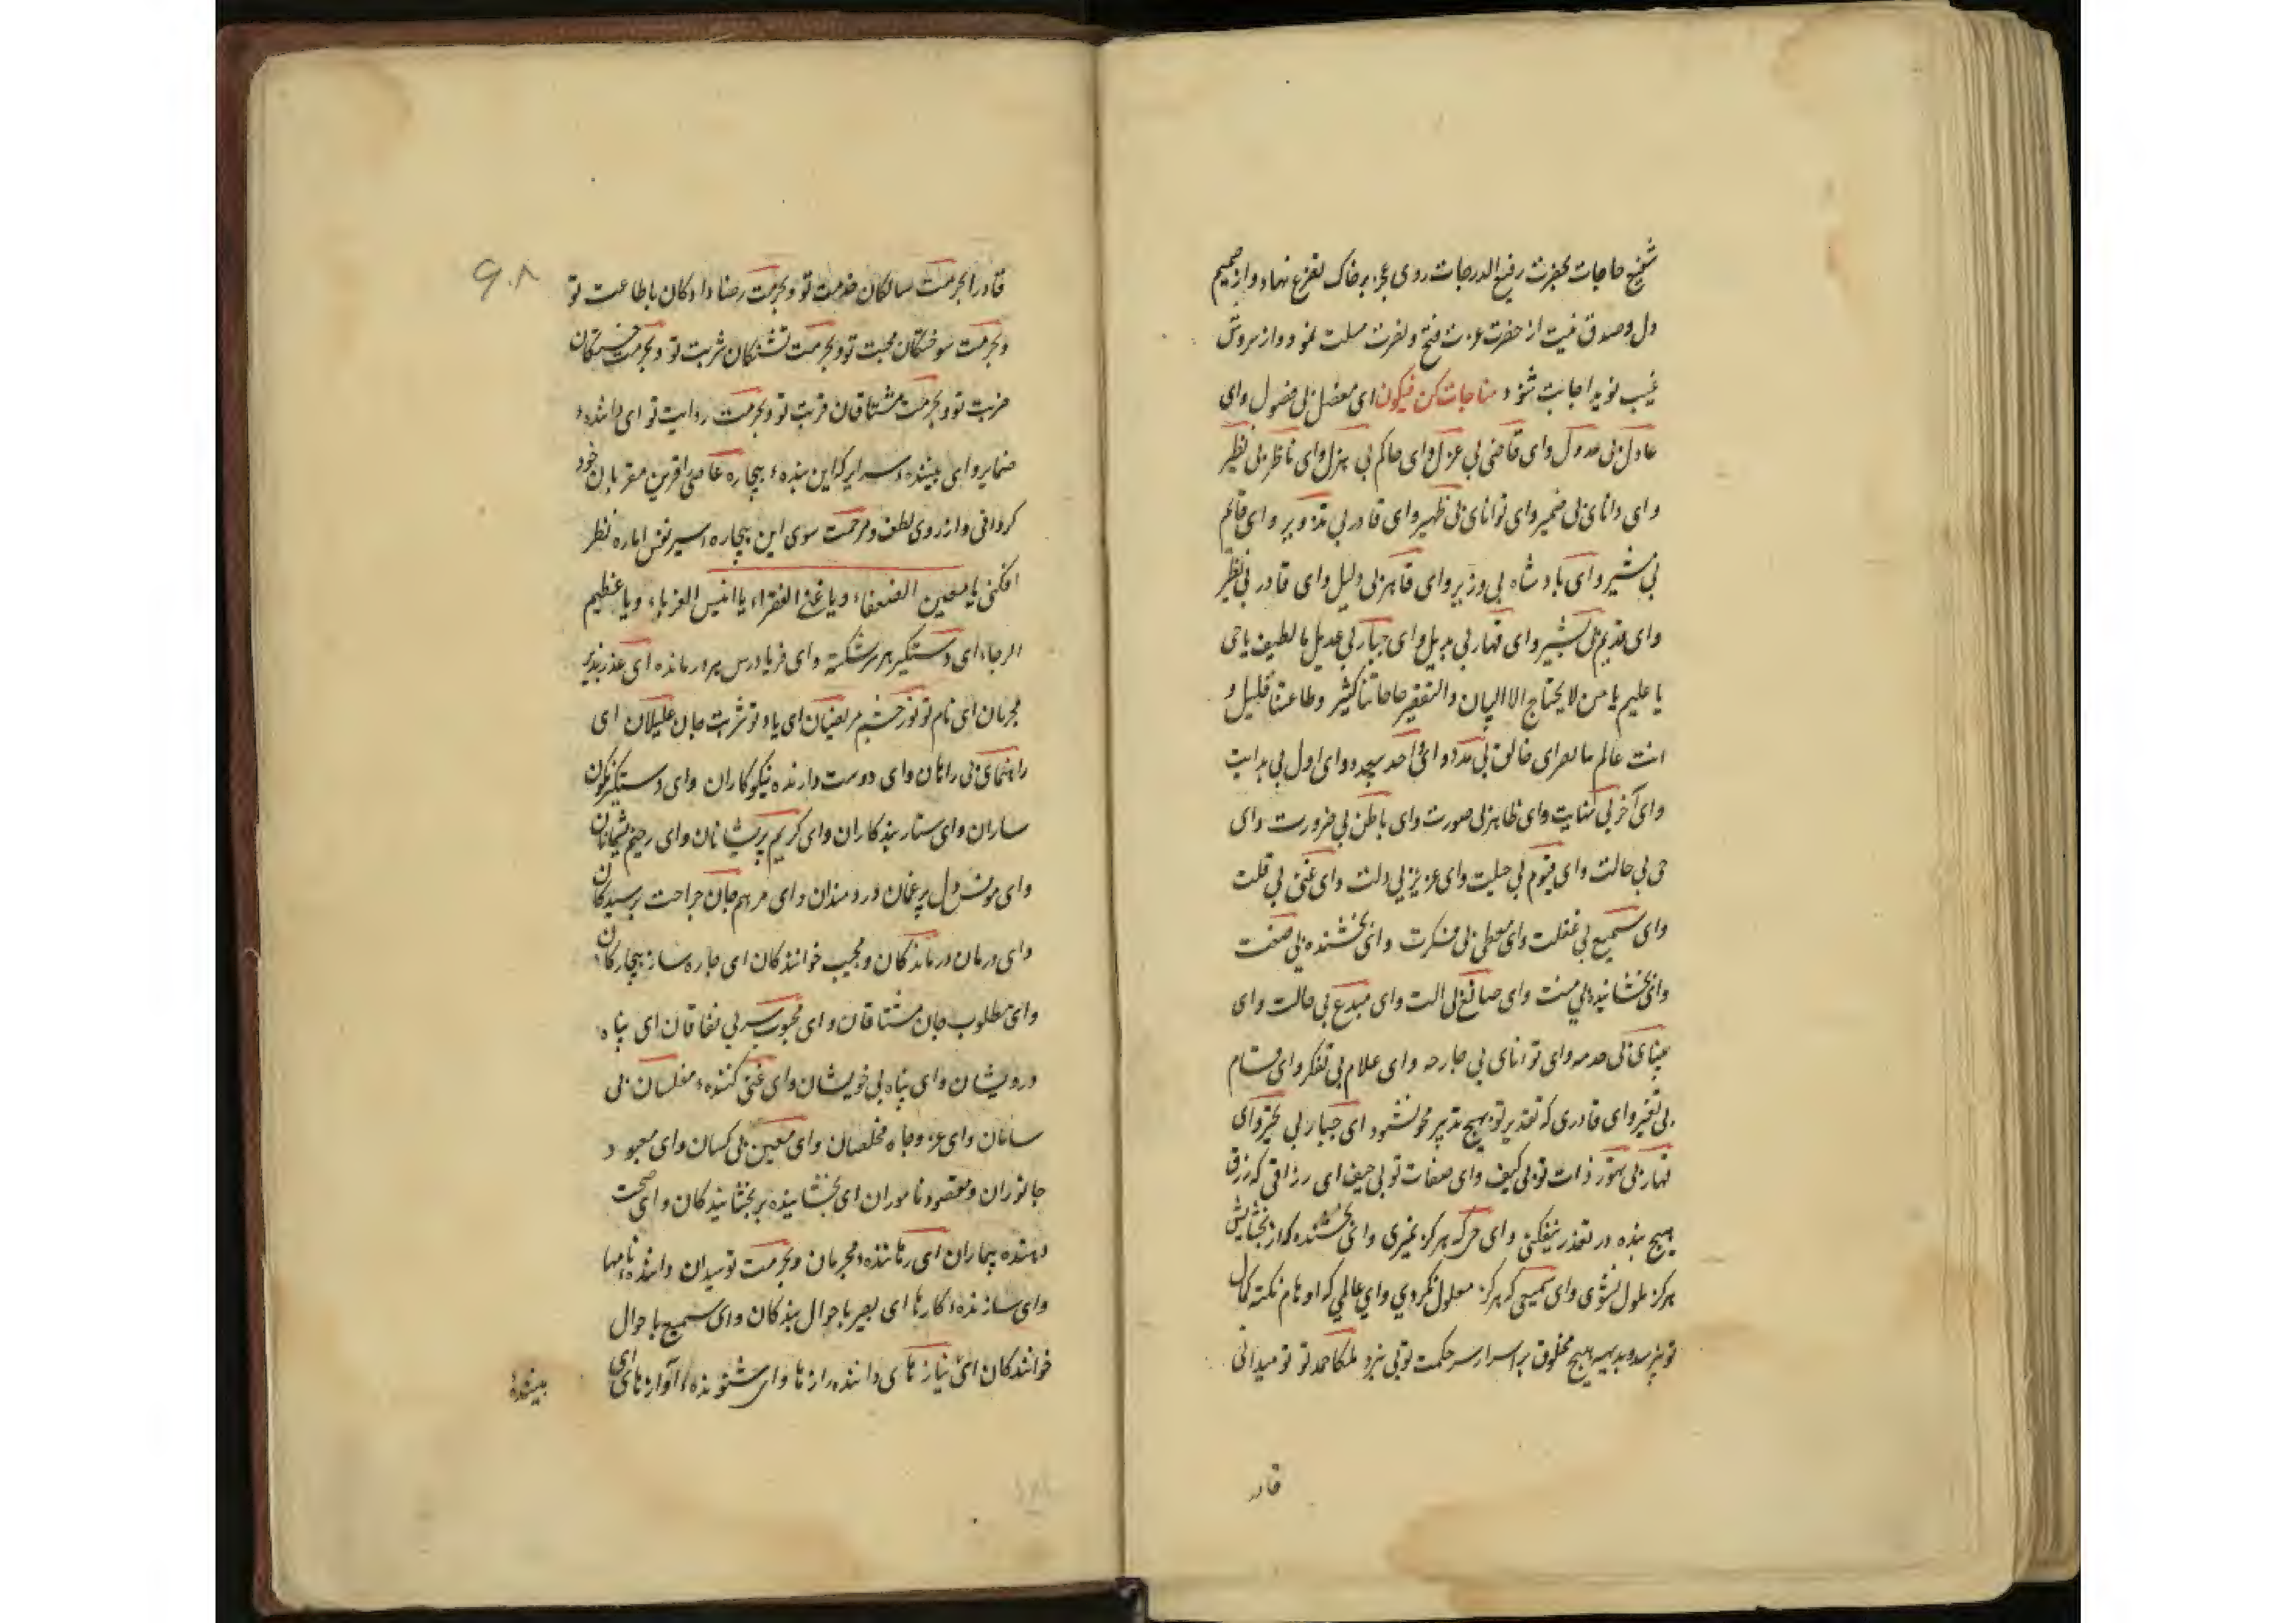 شفیع حاجات بحضرت رفیع الدرجات روی عجز بر خاک تضرع نهاد و از صمیم
دل و صدق نیت از حضرت عزت فتح و نصرت مسلت نمود و از سروش
غیب نوید اجابت شنود مناجات کن فیکون ای مفضل بی فضول وای
عادل بی عدول وای قاضی بی عزل وای حاکم بی هزل وای ناظر بی نظیر
وای دانای بی ضمیر وای توانای بی ظهیر وای قادر بی تذویر وای قایم
بی مشیر وای بادشاه بی وزیر وای قاهر بی دلیل وای قادر بی نظیر
وای قدیم بی وای قهار بی بدیل وای جبار بی عدیل یا لطیف یا حی
یا علیم یا من لا یحتاج الا البیان والتفقیر حاجاتنا کثیر وطاعتنا قلیل و
انت عالم وای خالق بی مدد وای احد وای اول بی بدایت
وای آخر بی نهایت وای ظاهر بی صورت وای باطن بی ضرورت وای
حی بی حالت وای قیوم بی حیلت وای عزیز بی دلت وای غنی بی قلت
وای سمیع بی غفلت وای معطی بی فکرت وای بخشنده بی صفت
وای بخشاینده بی منت وای صانع بی الت وای مبدع بی حالت وای
بینای بی حدسه وای توانای بی جارحه وای علام بی تفکر وای قسام
بی تغیر وای قادری که تقدیر تو بهیچ تدبیر محو نشود ای جبار بی تحیر وای
قهار بی تهور ذات تو بی کیف وای صفات تو بی حیف ای رزاقی که رزق
هیچ بنده در نیفکنی وای حی که هرگز نمیری وای بخشنده که از بخشایش
هرگز ملول نشوی وای سمیعی که هرگز معلول نگردی وای عالمی که اوهام نکته کمال
تو هیچ مخلوق بر اسرار سر حکمت تو پی نبرد ملکا حمد تو تو میدانی
قادر
۹۰۸
قادرا بحرمت سالکان خدمت تو وبحرمت رضا دادکان باطاعت تو
وبحرمت سوختکان محبت تو وبحرمت تشنکان شربت تو وبحرمت خستکان
ضربت تو وبحرمت مشتاقان قربت تو وبحرمت ردایت تو ای دانندهٔ
ضمایر وای بینندهٔ سرایر که این بندهٔ بیچاره عاصی را قرین مقربان خود
کردانی و از روی لطف و مرحمت سوی این بیچاره اسیر نفس اماره نظر
افکنی یا معین الضعفاء ویا غنی الفقراء یا انیس الغرباء ویا عظیم
الرجاء ای دستکیر هر شکسته وای فریادرس هر درمانده ای عذرپذیر
مجرمان ای نام تو نور چشم مریضان ای یاد تو شربت جان علیلان ای
راهنمای بی راهان وای دوست دارنده نیکوکاران وای دستکیر نکون
ساران وای ستار بدکاران وای کریم پریشانان وای رحیم پشیمانان
وای مونس دل پرغمان دردمندان وای مرهم جان جراحت رسیدکان
وای درمان درماندکان ومجیب خوانندکان ای چاره ساز بیچارکان
وای مطلوب جان مشتاقان وای محبوب سر بی نفاقان ای پناه
درویشان وای پناه بی خویشان وای غنی کنندهٔ مفلسان بی
سامان وای عز وجاه مخلصان وای معین بی کسان وای معبود
جانوران ومقصود ناموران ای بخشاینده بر بخشایندکان وای صحت
دهنده بیماران ای رهانندهٔ مجرمان وبحرمت نومیدان دانندهٔ نامها
وای سازندهٔ کارها ای بصیر باحوال بندکان وای سمیع باحوال
خوانندکان ای بی نیاز ای دانندهٔ رازها وای شنوندهٔ آوازها ای
بینندهٔ